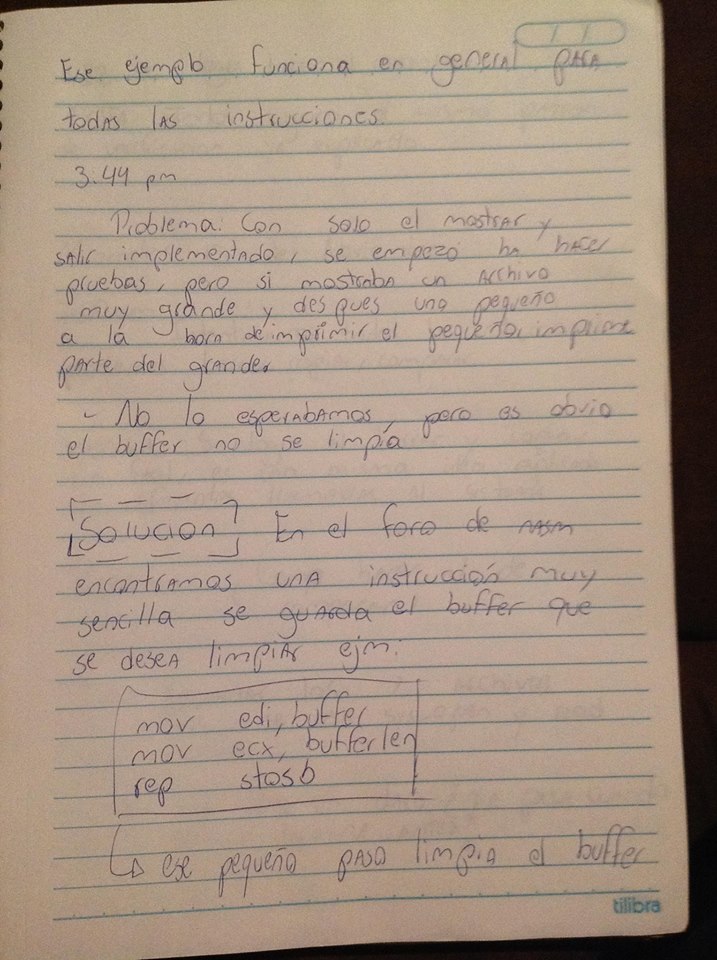 Ese ejemplo funciona en general para
todas las instrucciones.
3:44 pm
Problema: Con solo el mostrar y
salir implementado, se empezó ha hacer
pruebas, pero si mostraba un archivo
muy grande y despues uno pequeño
a la hora de imprimir el pequeño, imprime
parte del grande.
- No lo esperabamos, pero es obvio
el buffer no se limpia
Solucion En el foro de nasm
encontramos una instrucción muy
sencilla se guarda el buffer que
se desea limpiar ejm:
mov edi, buffer
mov ecx, bufferlen
rep stosb
ese pequeño paso limpia el buffer
tilibra